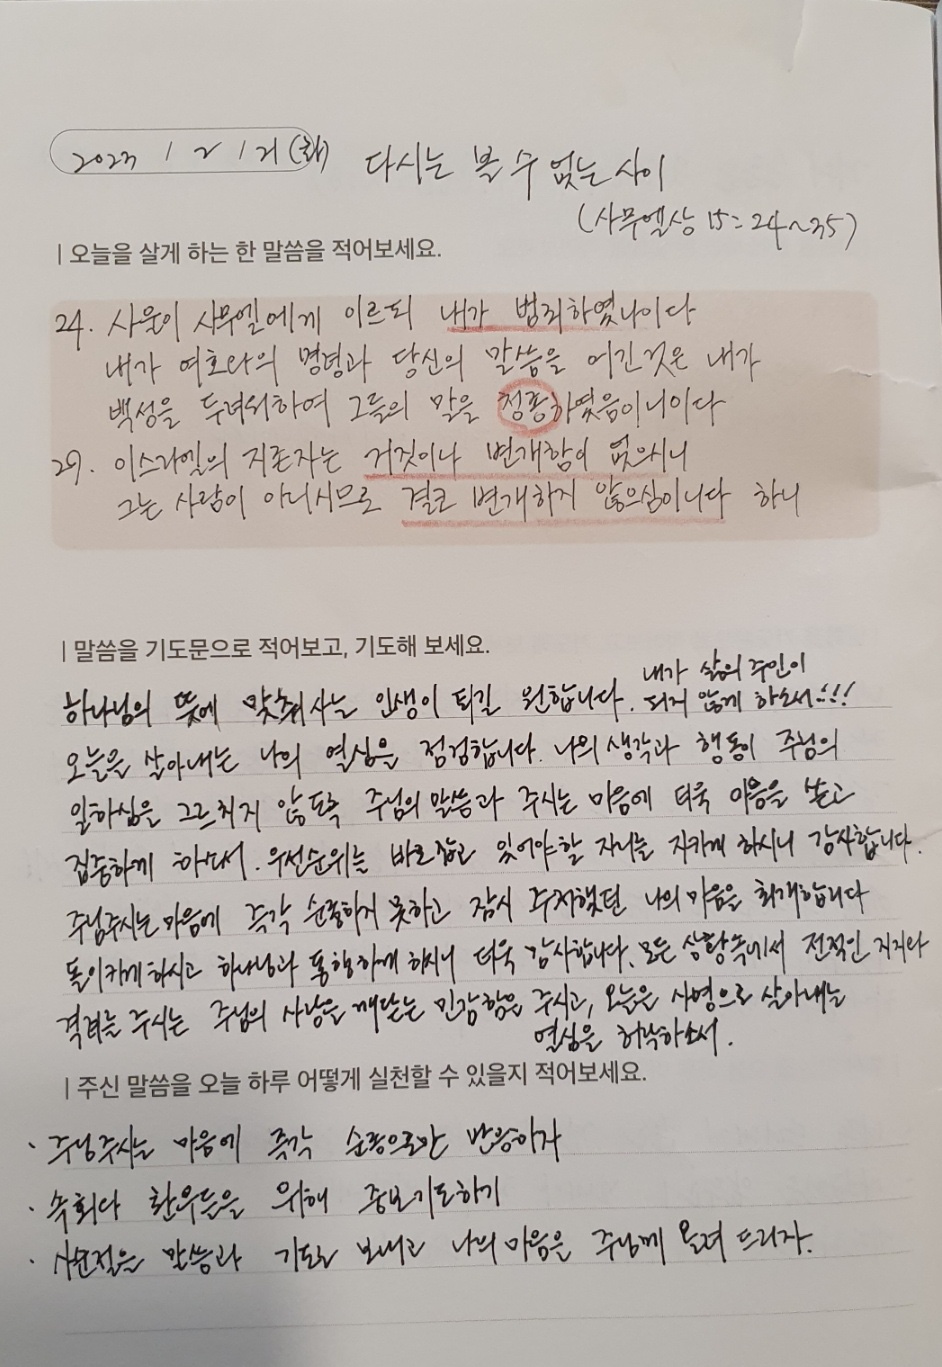 2023 / 2 / 21 (화) 다시는 볼 수 없는 사이
(사무엘상 15:24~35)
| 오늘을 살게 하는 한 말씀을 적어보세요.
24. 사울이 사무엘에게 이르되 내가 범죄하였나이다
내가 여호와의 명령과 당신의 말씀을 어긴 것은 내가
백성을 두려워하여 그들의 말을 청종하였음이니이다
29. 이스라엘의 지존자는 거짓이나 변개함이 없으시니
그는 사람이 아니시므로 결코 변개하지 않으심이니다 하니
| 말씀을 기도문으로 적어보고, 기도해 보세요.
하나님의 뜻에 맞춰 사는 인생이 되길 원합니다. 내가 삶의 주인이
되지 않게 하소서!!!
오늘을 살아내는 나의 열심을 점검합니다. 나의 생각과 행동이 주님의
일하심을 그르치지 않도록 주님의 말씀과 주시는 마음에 더욱 마음을 쏟고
집중하게 하소서. 우선순위는 바로잡고 있어야 할 자리를 지키게 하시니 감사합니다.
주님 주시는 마음에 즉각 순종하지 못하고 잠시 주저했던 나의 마음을 회개합니다
돌이키게 하시고 하나님과 동행하게 하시니 더욱 감사합니다. 모든 상황속에서 전적인 지지와
격려를 주시는 주님의 사랑을 깨닫는 민감함을 주시고, 오늘을 사명으로 살아내는
열심을 허락하소서.
| 주신 말씀을 오늘 하루 어떻게 실천할 수 있을지 적어보세요.
· 주님 주시는 마음에 즉각 순종으로만 반응하자
· 속회와 환우들을 위해 중보기도하기
· 사순절을 말씀과 기도로 보내고 나의 마음을 주님께 올려 드리자.